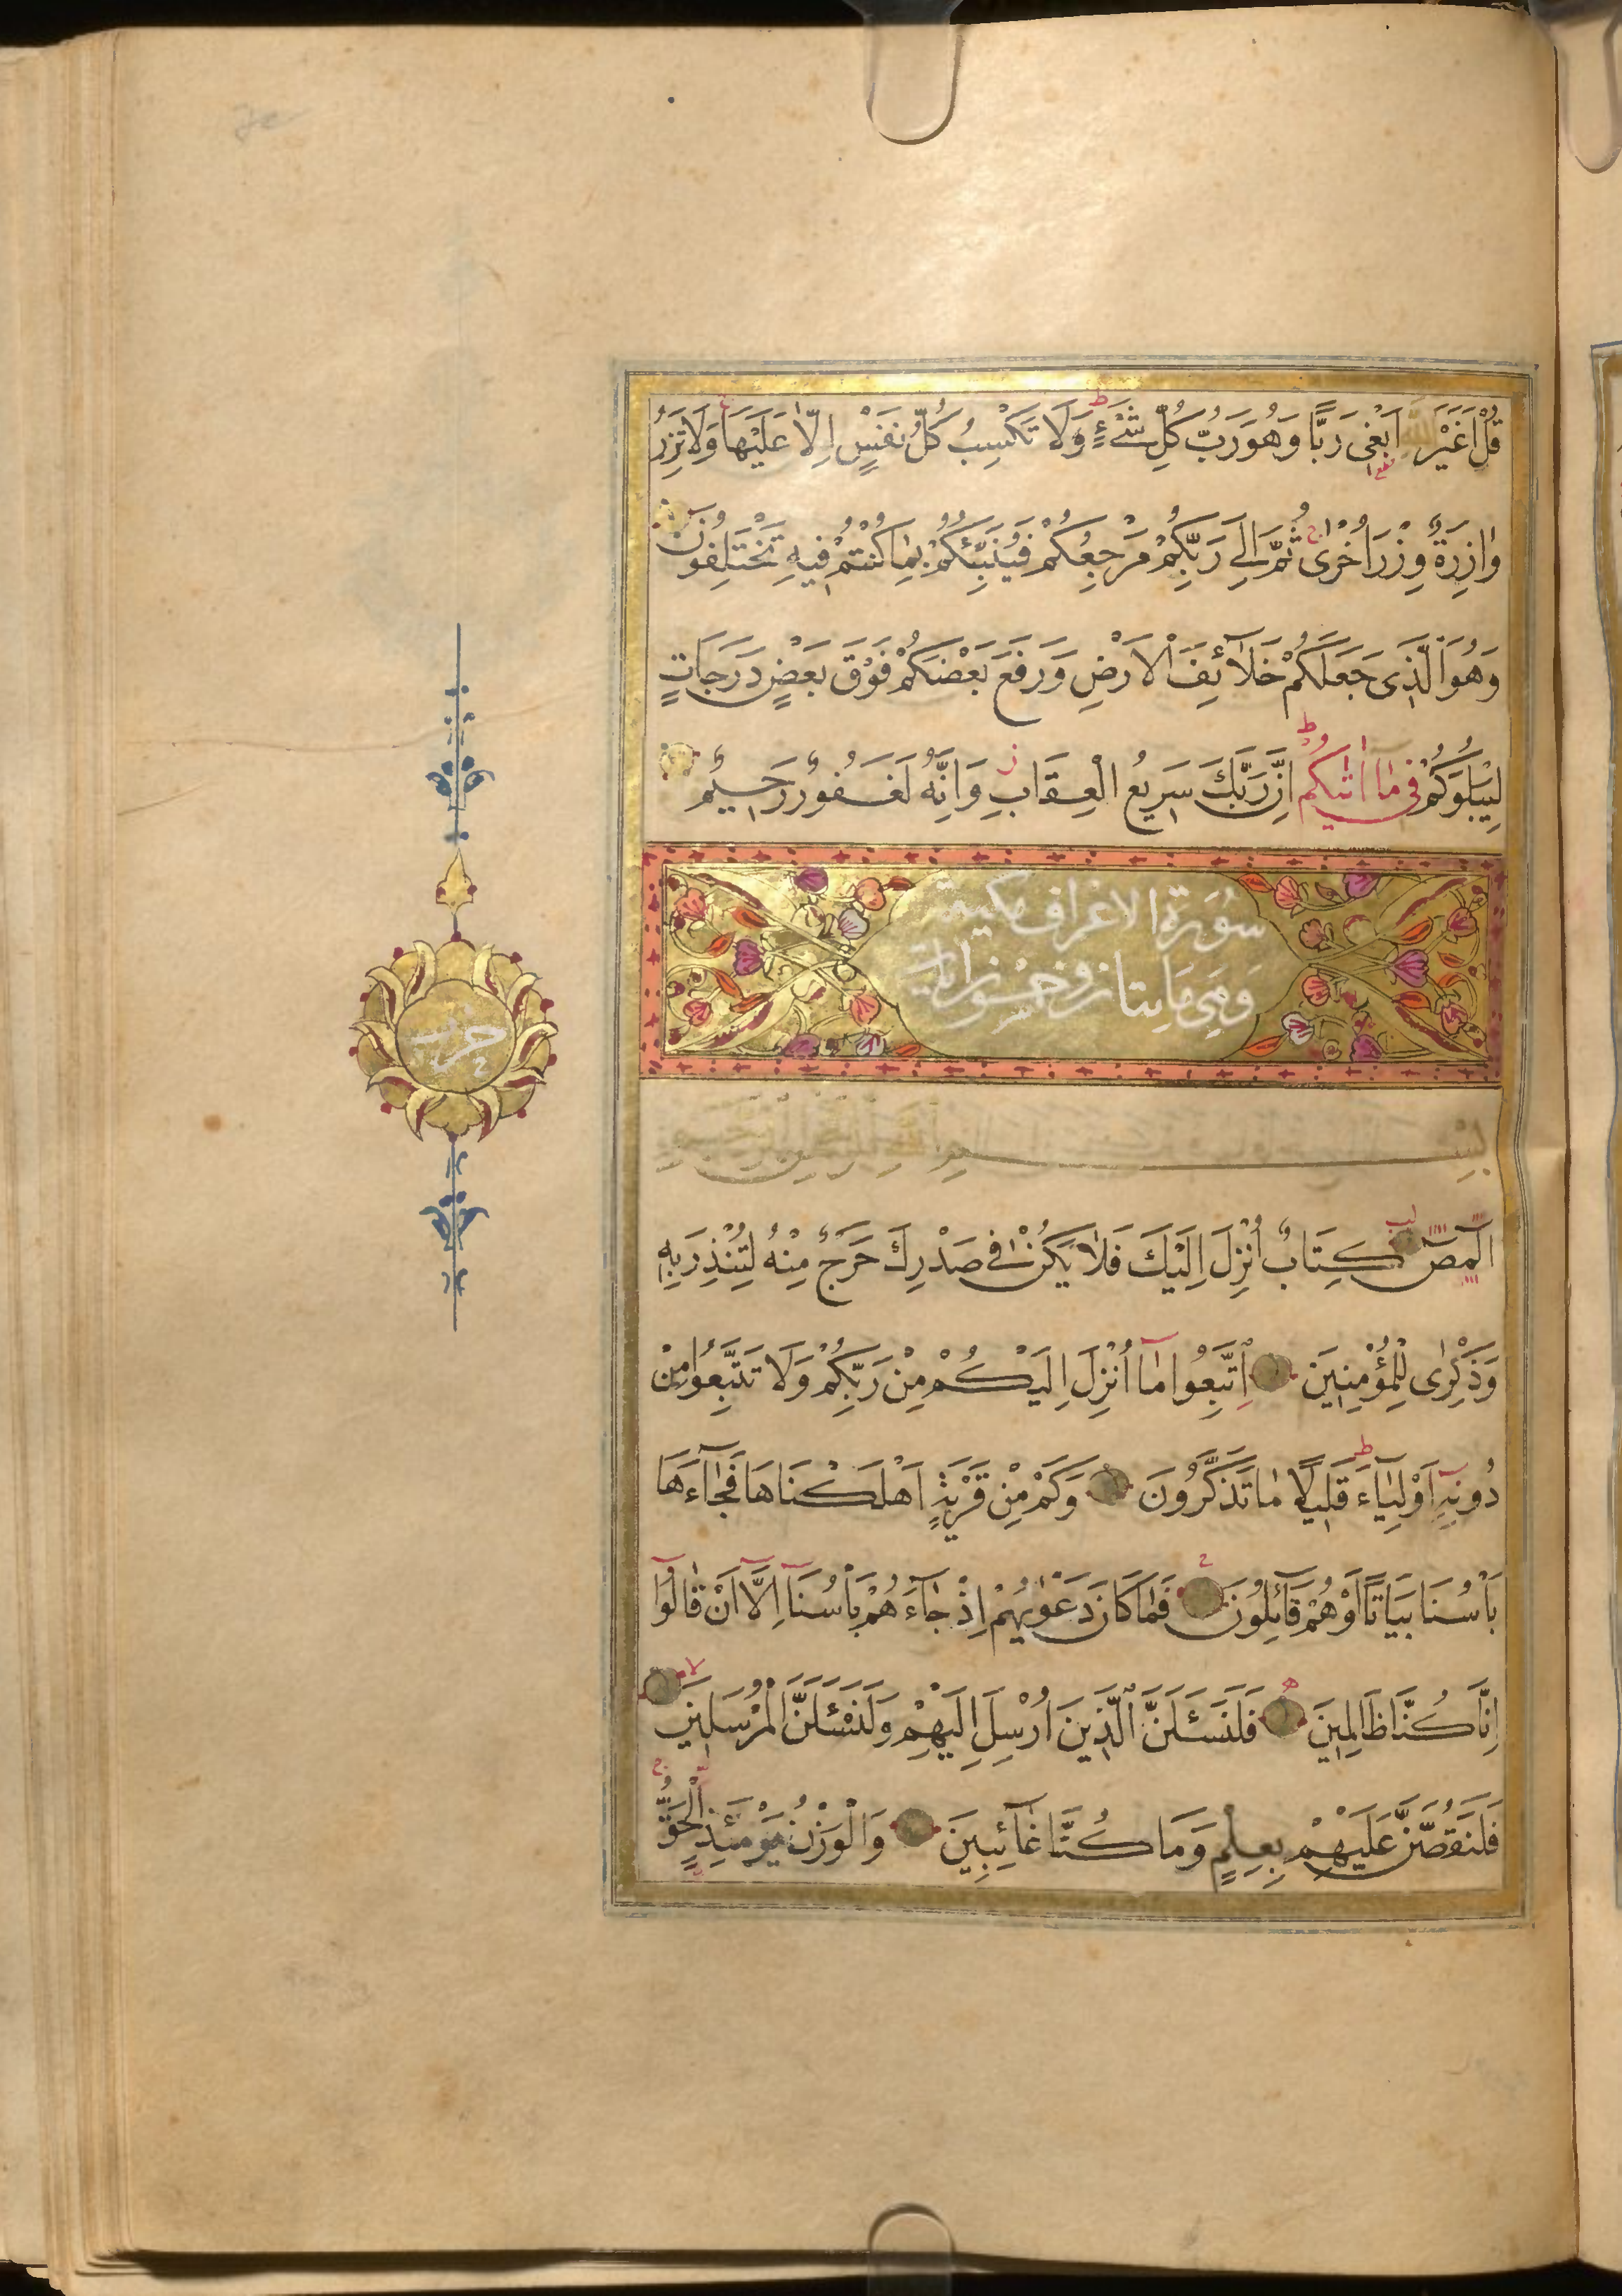 قُلْ اَغَيْرَ اللّٰهِ اَبْغِى رَبًّا وَهُوَ رَبُّ كُلِّ شَىْءٍ وَلَا تَكْسِبُ كُلُّ نَفْسٍ اِلَّا عَلَيْهَا وَلَا تَزِرُ
وَازِرَةٌ وِزْرَ اُخْرٰى ثُمَّ اِلٰى رَبِّكُمْ مَرْجِعُكُمْ فَيُنَبِّئُكُمْ بِمَا كُنْتُمْ فِيهِ تَخْتَلِفُونَ
وَهُوَ الَّذِى جَعَلَكُمْ خَلَآئِفَ الْاَرْضِ وَرَفَعَ بَعْضَكُمْ فَوْقَ بَعْضٍ دَرَجَاتٍ
لِيَبْلُوَكُمْ فِى مَا اٰتٰيكُمْ اِنَّ رَبَّكَ سَرِيعُ الْعِقَابِ وَاِنَّهُ لَغَفُورٌ رَحِيمٌ
سُورَةُ الاعراف مكية
وهى مايتان وخمس ايات
حزب
بِسْمِ اللّٰهِ الرَّحْمٰنِ الرَّحِيمِ
الٓمٓصٓ كِتَابٌ اُنْزِلَ اِلَيْكَ فَلَا يَكُنْ فِى صَدْرِكَ حَرَجٌ مِنْهُ لِتُنْذِرَ بِهِ
وَذِكْرٰى لِلْمُؤْمِنِينَ اِتَّبِعُوا مَا اُنْزِلَ اِلَيْكُمْ مِنْ رَبِّكُمْ وَلَا تَتَّبِعُوا مِنْ
دُونِهِ اَوْلِيَاءَ قَلِيلًا مَا تَذَكَّرُونَ وَكَمْ مِنْ قَرْيَةٍ اَهْلَكْنَاهَا فَجَآءَهَا
بَاْسُنَا بَيَاتًا اَوْ هُمْ قَائِلُونَ فَمَا كَانَ دَعْوٰيهُمْ اِذْ جَآءَهُمْ بَاْسُنَا اِلَّا اَنْ قَالُوا
اِنَّا كُنَّا ظَالِمِينَ فَلَنَسْـَٔلَنَّ الَّذِينَ اُرْسِلَ اِلَيْهِمْ وَلَنَسْـَٔلَنَّ الْمُرْسَلِينَ
فَلَنَقُصَّنَّ عَلَيْهِمْ بِعِلْمٍ وَمَا كُنَّا غَآئِبِينَ وَالْوَزْنُ يَوْمَئِذٍ الْحَقُّ